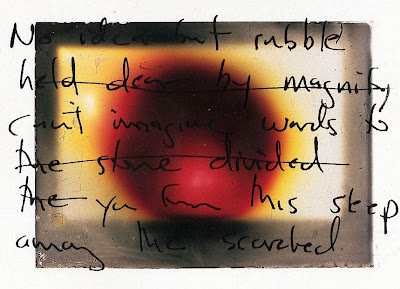 No idea but rubble
held dear by magnify
can't imagine words to
the stone divided
the you from this step
away the scorched.